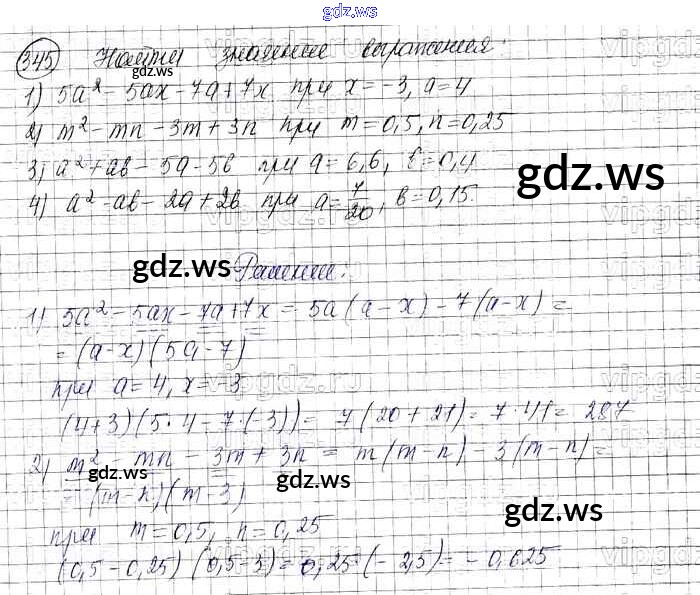 gdz.ws
345 Найти значение выражения:
1) 5a² - 5ax - 7a + 7x при x = -3, a = 4
2) m² - mn - 3m + 3n при m = 0,5, n = 0,25
3) a² + ab - 5a - 5b при a = 6,6, b = 0,4
4) a² - ab - 2a + 2b при a = 7/20, b = 0,15.
Решение:
1) 5a² - 5ax - 7a + 7x = 5a(a - x) - 7(a - x) =
= (a - x)(5a - 7)
при a = 4, x = -3
(4 + 3)(5·4 - 7·(-3)) = 7(20 + 21) = 7·41 = 287
2) m² - mn - 3m + 3n = m(m - n) - 3(m - n) =
= (m - n)(m - 3)
при m = 0,5, n = 0,25
(0,5 - 0,25)(0,5 - 3) = 0,25·(-2,5) = -0,625
gdz.ws
gdz.ws
gdz.ws
gdz.ws
gdz.ws
gdz.ws
gdz.ws